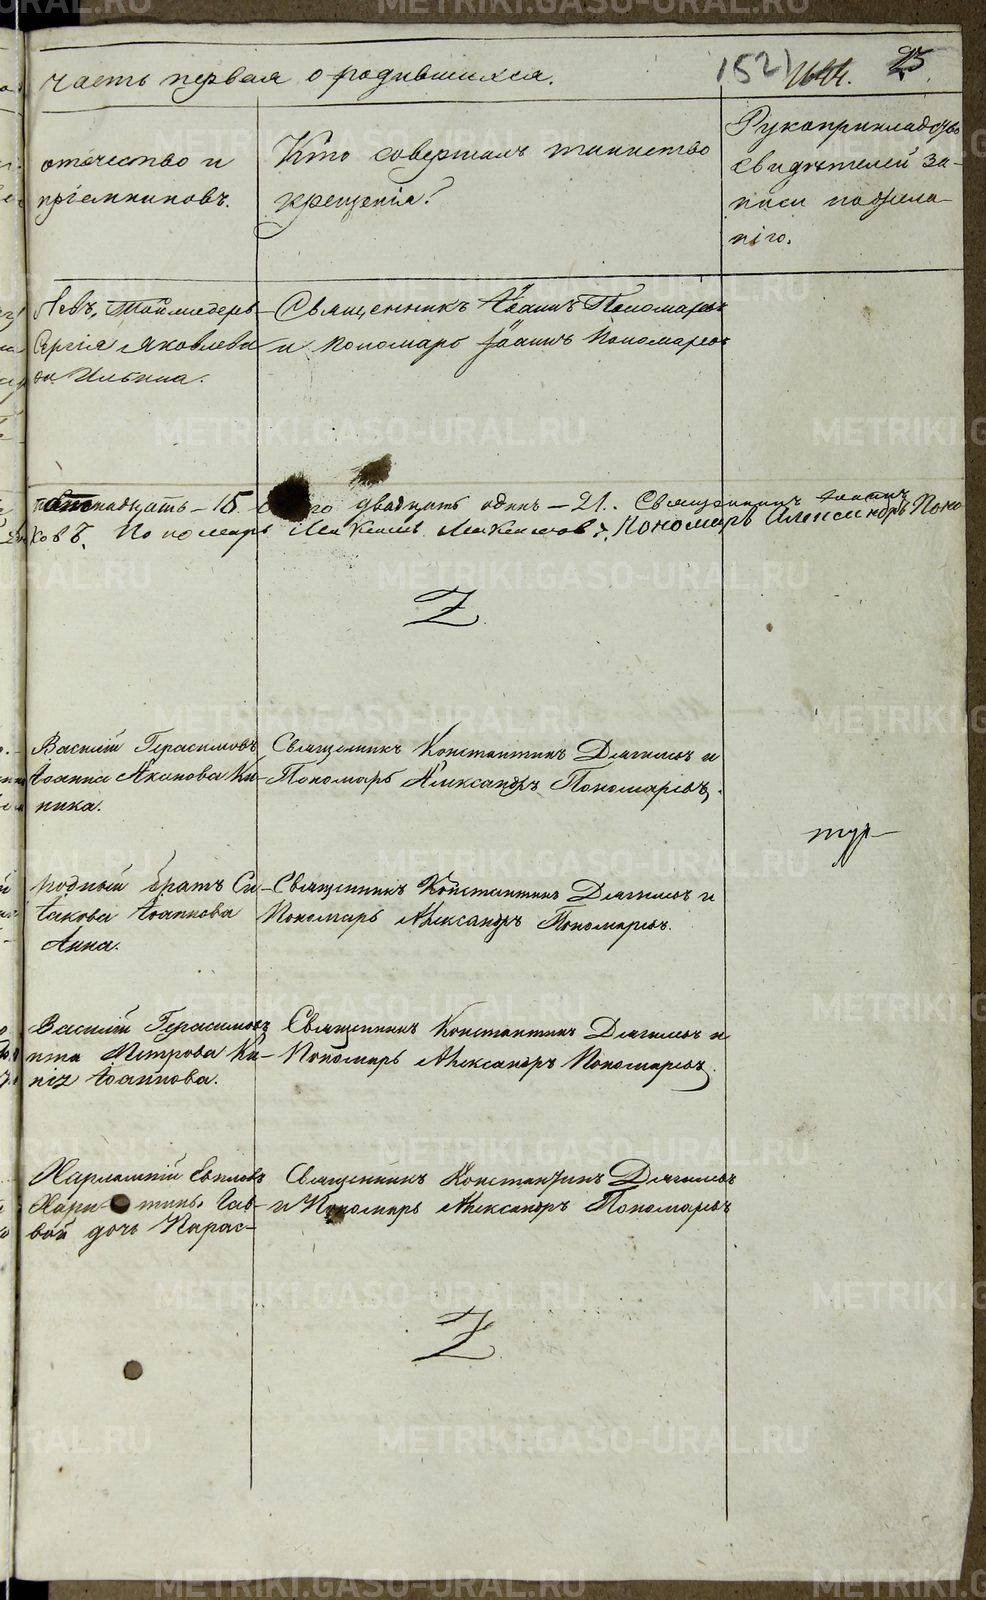 часть первая о родившихся.
1521
1644.
25.
отечество и
пріемниковъ.
Кто совершалъ таинство
крещенія?
Рукоприкладство
свидѣтелей за-
писи пожела-
нію.
Левъ,
Сергія Яковлева
Ильина.
Священникъ Іоаннъ Пономаревъ
и пономарь Іоаннъ Пономаревъ
пятнадцать – 15. двадцать одинъ – 21. Священникъ Іоаннъ
ковъ. Пономарь Максимъ Максимовъ. Пономарь Александръ Поно
Z
Василій Герасимовъ
Іоанна Ки-
ника.
Священникъ Константинъ Дягилевъ и
Пономарь Александръ Пономаревъ.
тур
родный братъ Си-
Іакова Іоаннова
Анна.
Священникъ Константинъ Дягилевъ и
Пономарь Александръ Пономаревъ.
Василій Герасимовъ
Петрова Ки-
Іоаннова.
Священникъ Константинъ Дягилевъ и
Пономарь Александръ Пономаревъ.
Харлампій
Гав-
вой дочь Парас-
Священникъ Константинъ Дягилевъ
и Пономарь Александръ Пономаревъ
Z
METRIKI.GASO-URAL.RU